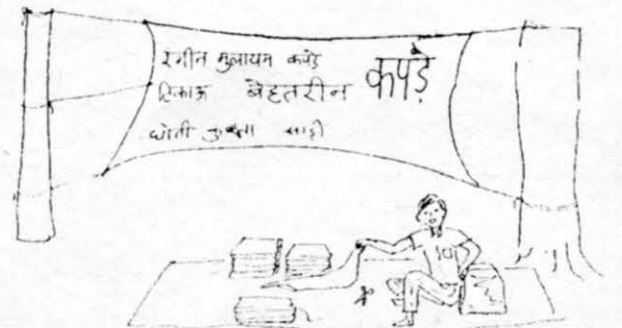 रंगीन मुलायम कपड़े
टिकाऊ बेहतरीन कपड़े
धोती कुरता साड़ी